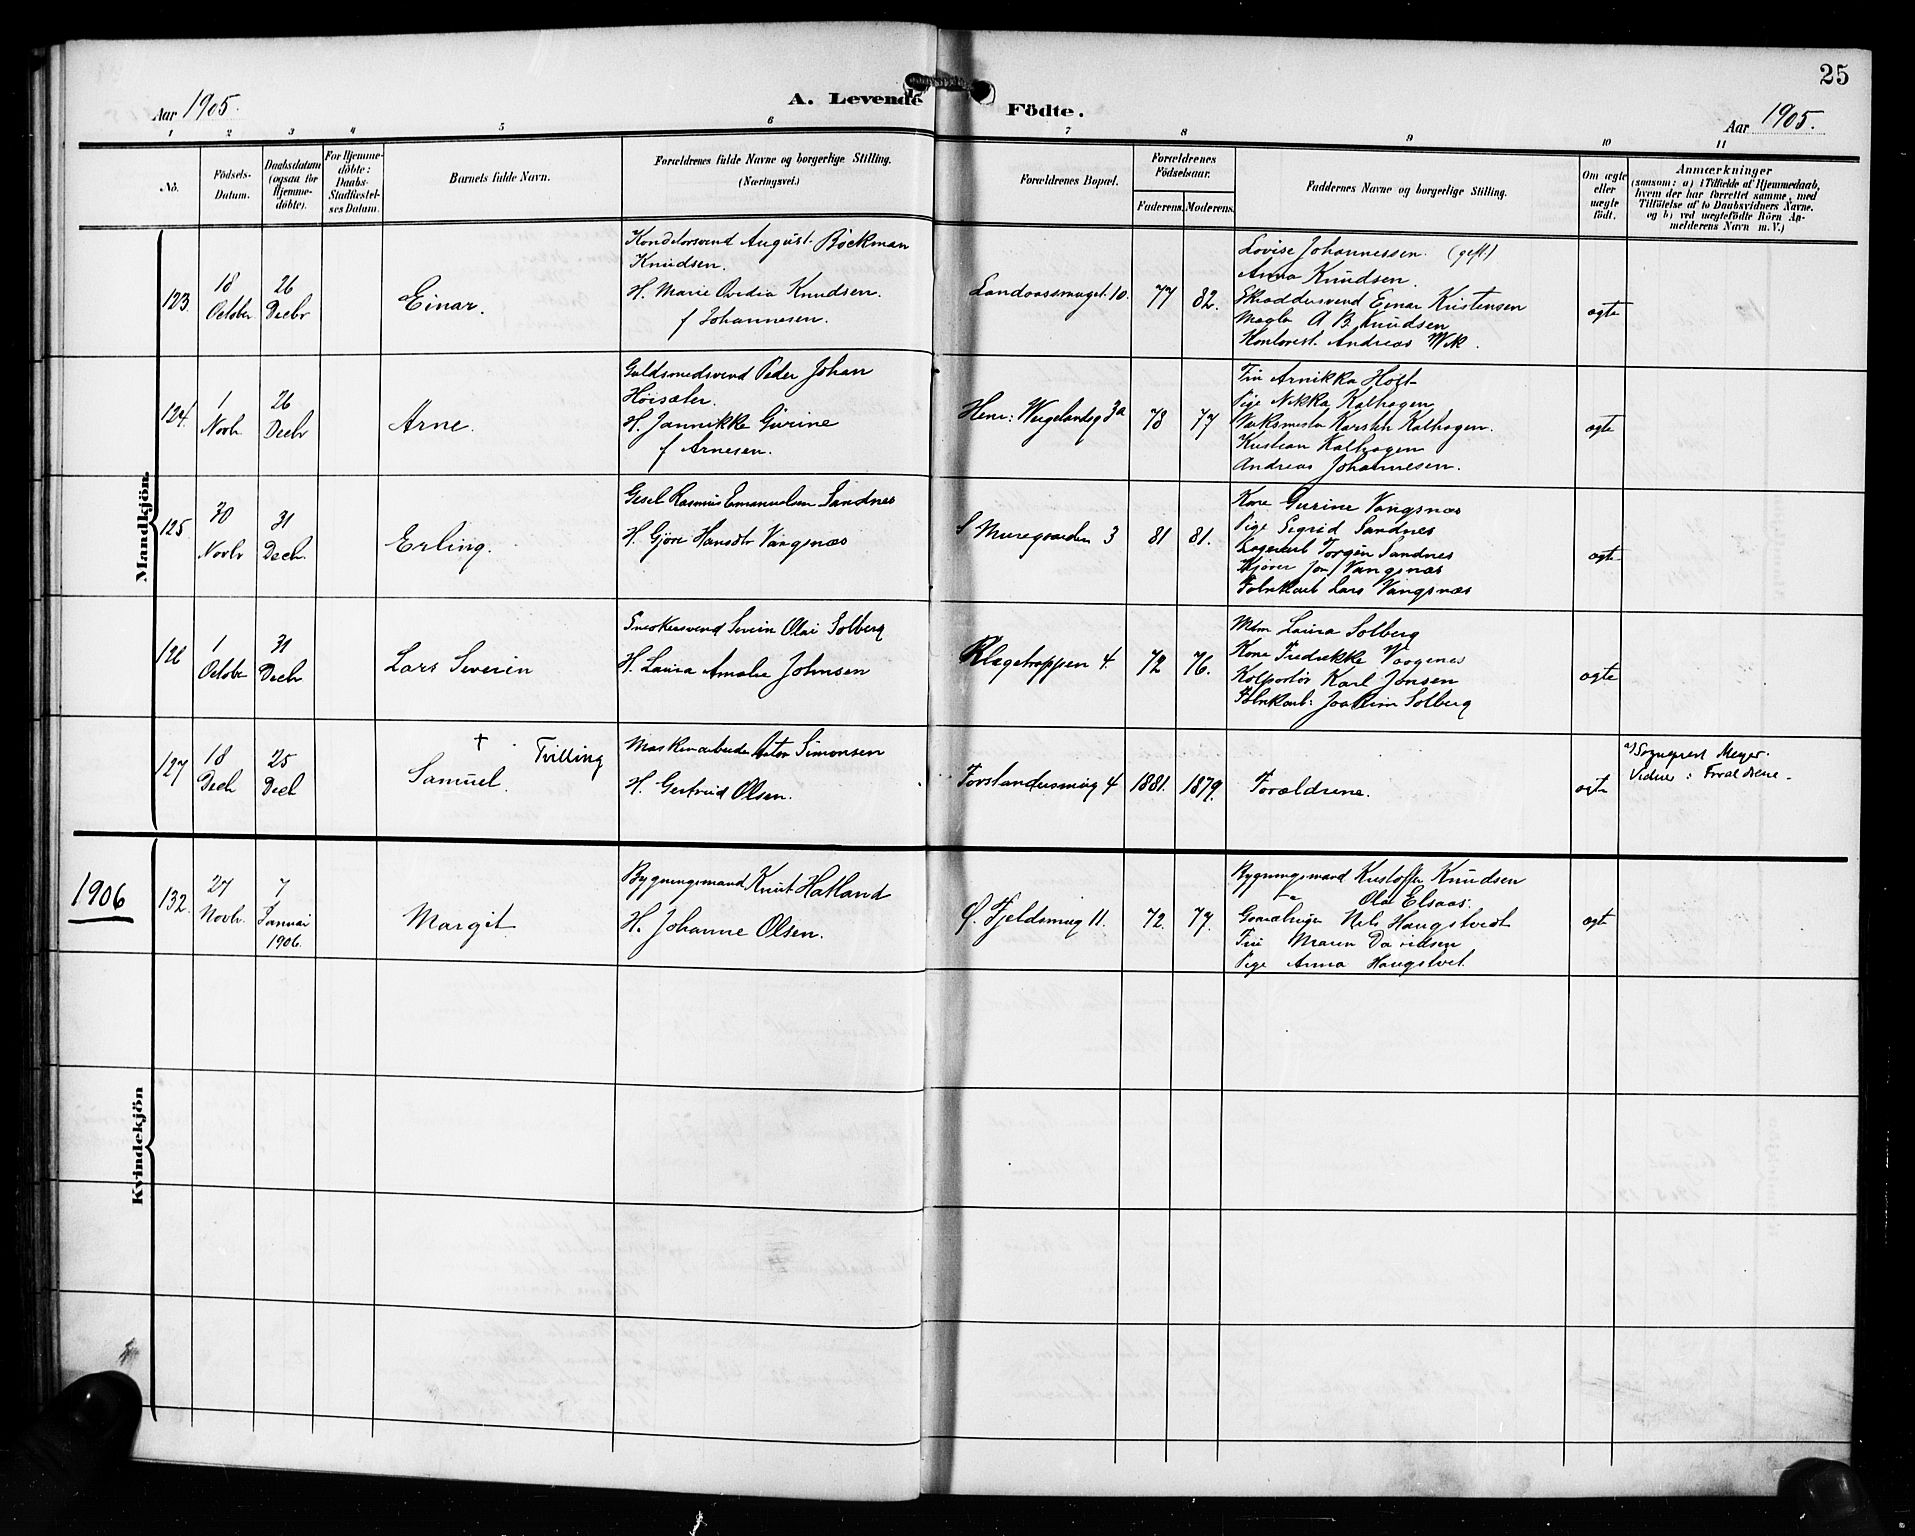 25
Aar 1905.
A. Levende Födte.
Aar 1905.
1 2 3 4 5 6 7 8 9 10 11
No.
Födsels-Datum.
Daabsdatum (ogsaa for Hjemme-döbte).
For Hjemme-döbte: Daabs-Stadfæstel-ses Datum.
Barnets fulde Navn.
Forældrenes fulde Navne og borgerlige Stilling.
(Næringsvei.)
Forældrenes Bopæl.
Forældrenes Födselsaar.
Faderens. Moderens.
Faddernes Navne og borgerlige Stilling.
Om ægte eller uægte födt.
Anmærkninger
(saasom: a) i Tilfælde af Hjemmedaab,
hvem der har forrettet samme, med
Tilföielse af to Daabsvidners Navne,
og b) ved uægtefödte Börn An-
melderens Navn m. V.)
Mandkjön.
123.
18 October
26 Decbr
Einar.
Konditorsvend August Böckman
Knudsen.
H. Marie Ovedia Knudsen.
f Johannesen.
Landaassmuget. 10.
77
82.
Lovise Johannessen. (gift.)
Anna Knudsen.
Skræddersvend Einar Kristensen
Mægler A. B. Knudsen
Kontorist. Andreas Wik.
ægte
124.
1 Novb.
26 Decbr
Arne.
Guldsmedsvend Peder Johan
Höisæter.
H. Jannikke Gurine
f Arnesen.
Henr: Wergelandsg 3a
78
77
Fru Arnikka Holt
Pige Nikka Kalhagen
Værksmester Karsten Kalhagen.
Kristian Kalhagen
Andreas Johannesen.
ægte
125.
30 Novbr
31 Decb.
Erling.
Gesel Rasmus Emanuelsen Sandnes
H. Gjöri Hansdtr Vangsnæs
S Muregaarden 3
81
81.
Kone Gurine Vangsnæs
Pige Sigrid Sandnes
Lagerarb Torgeir Sandnes
Kjører Jon Vangsnæs
Fabrikarb Lars Vangsnæs
ægte
126
1 October
31 Decbr
Lars Severin
Snedkersvend Severin Olai Solberg
H. Laura Amalie Johnsen
Klagetrappen 4.
72
76.
Mdm Laura Solberg
Kone Fredrikke Vaagenes
Kolportör Karl Jonsen
Fabrikarb: Joakim Solberg
ægte
127
18 Decb
25 Decb
† Tvilling
Samuel.
Maskinarbeider Anton Simonsen
H. Gertrud Olsen.
Forstandersmug 4
1881.
1879.
Forældrene.
ægte
a) Sogneprest Meyer.
Vidner: Forældrene.
Kvindekjön
1906
132.
27 Novbr.
7 Januar 1906.
Margit
Bygningsmand Knut Hatland
H. Johanne Olsen.
Ø. Fjeldsmug 11.
72.
77.
Bygningsmand Kristoffer Knudsen
Ola Elsaas.
Gaardbruger Nils Haugstvedt
Fru Maren Davidsen
Pige Anna Haugstvet.
ægte